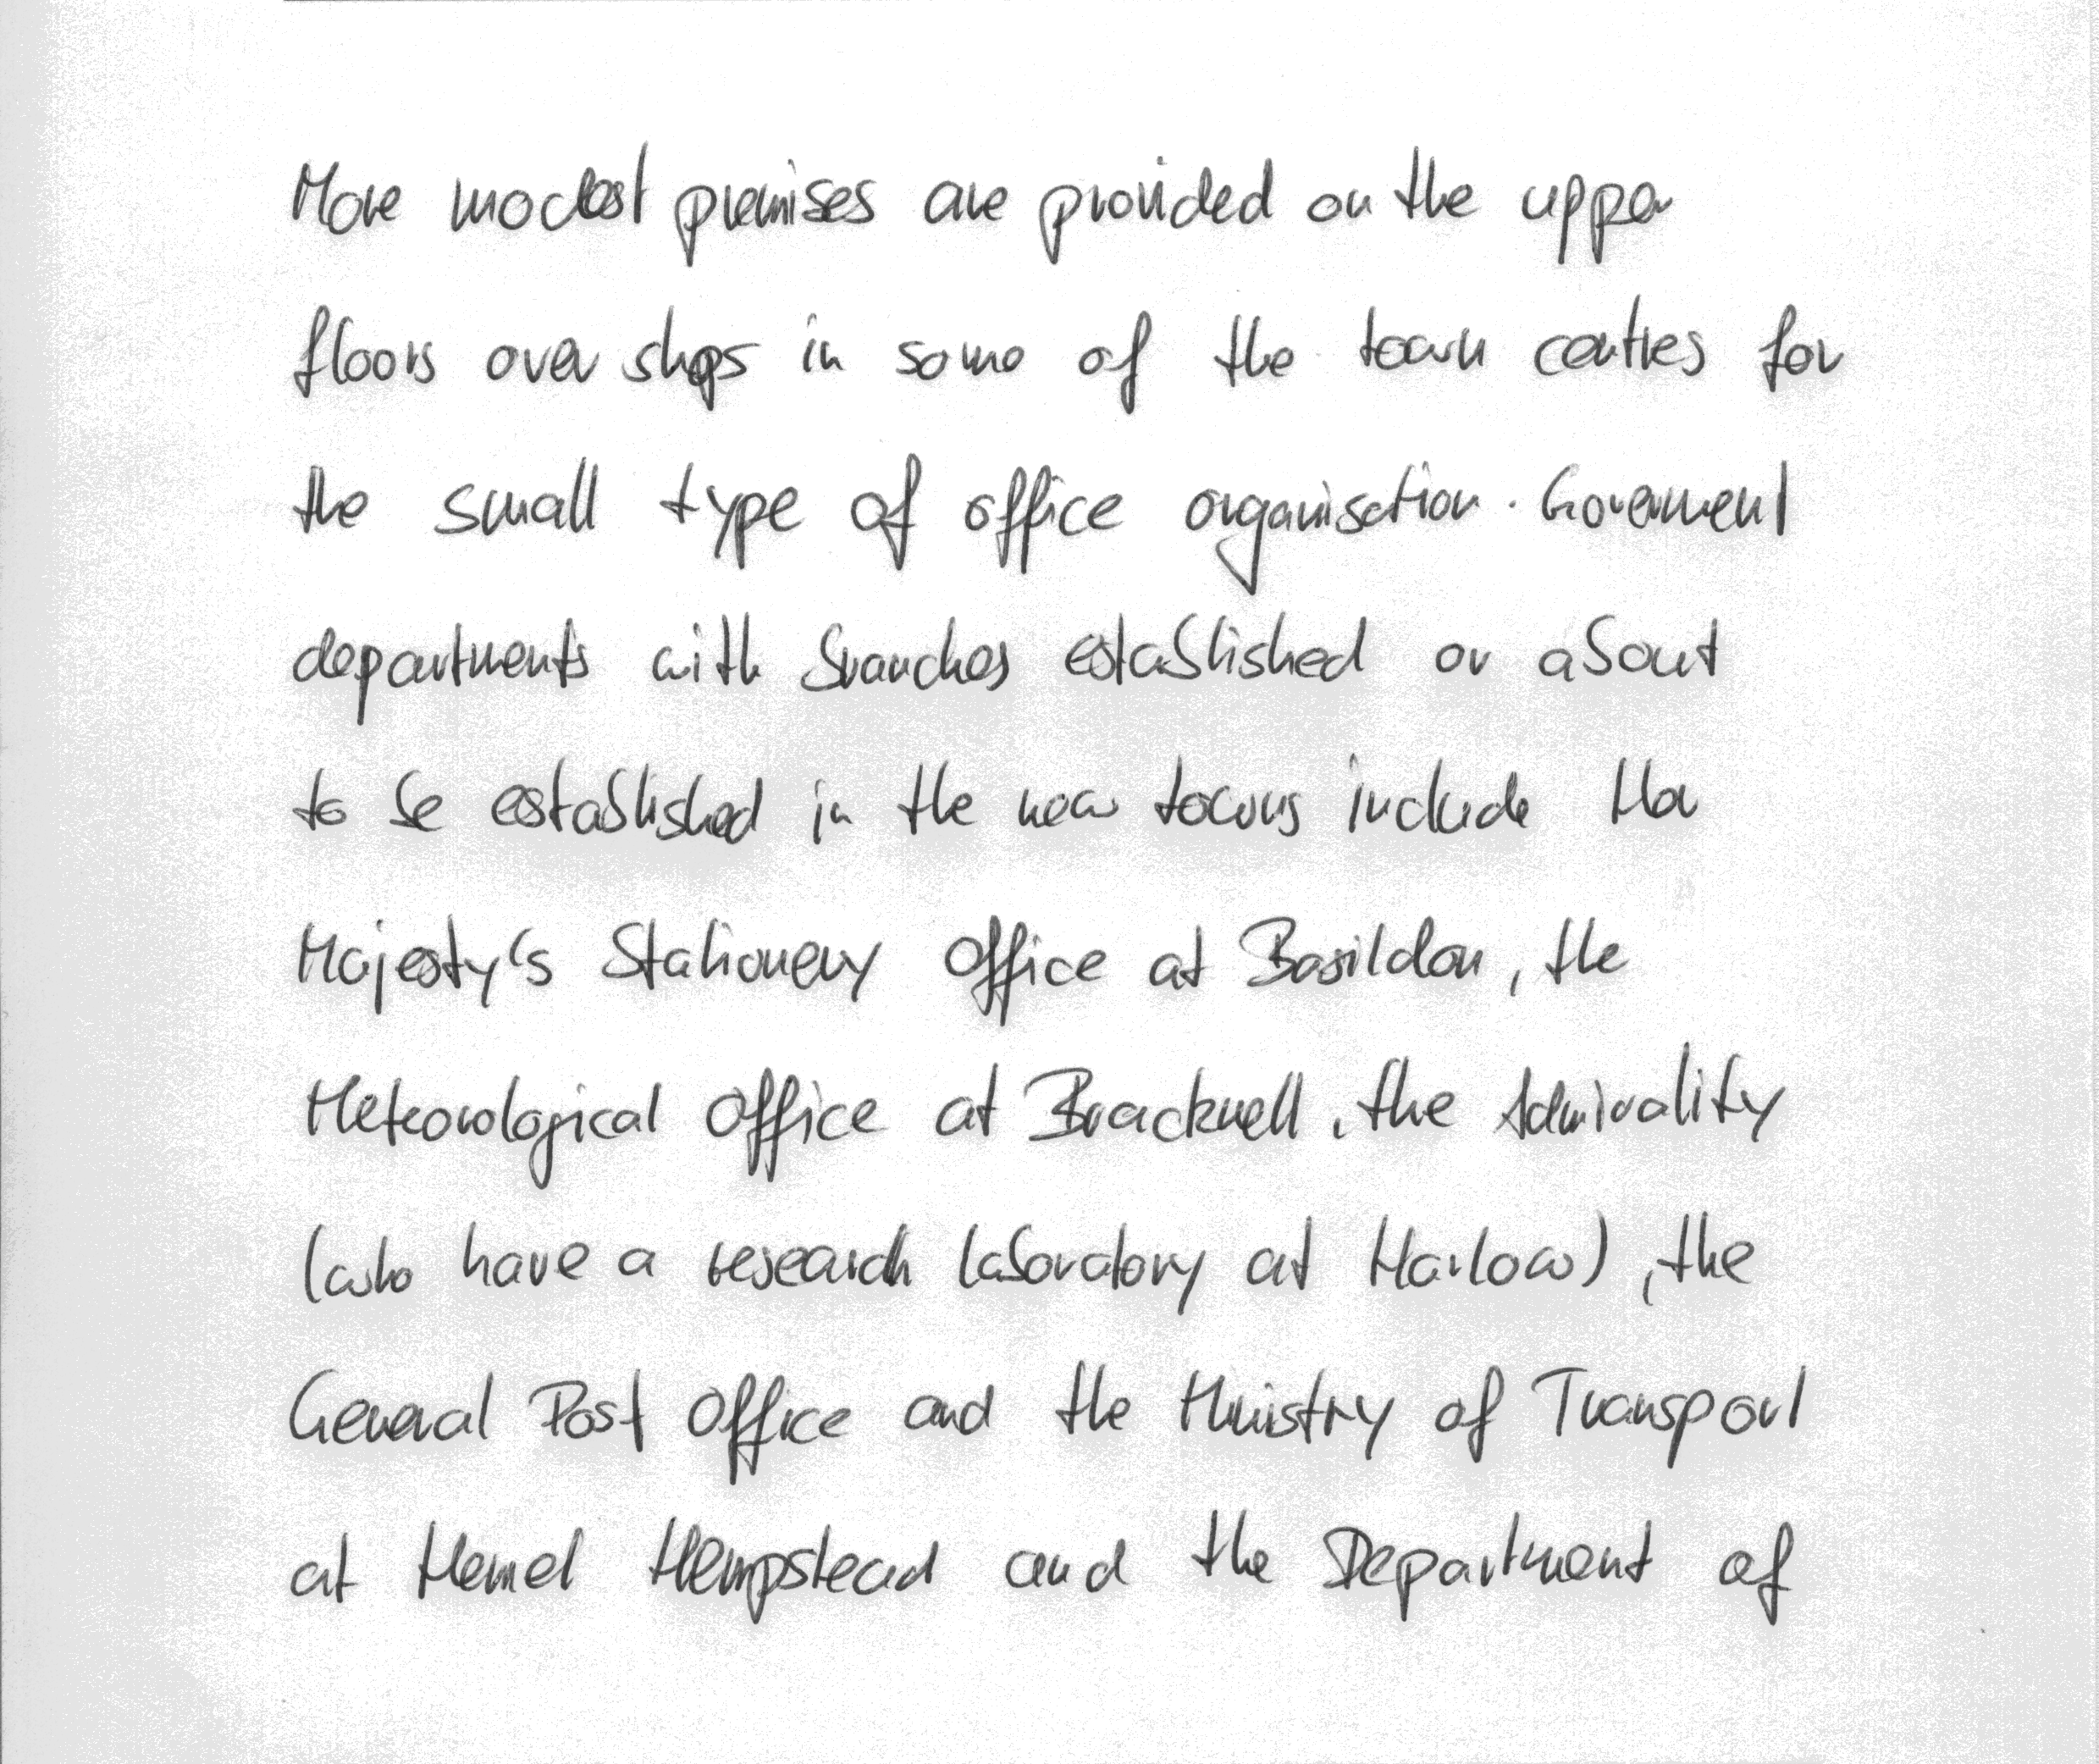 More modest premises are provided on the upper
floors over shops in some of the town centres for
the small type of office organisation. Goverment
departments with branches established or about
to be established in the new towns include Her
Majesty's Stationery Office at Basildon, the
Meteorological Office at Bracknell, the Admirality
(who have a research laboratory at Harlow), the
General Post Office and the Ministry of Transport
at Hemel Hempstead and the Department of